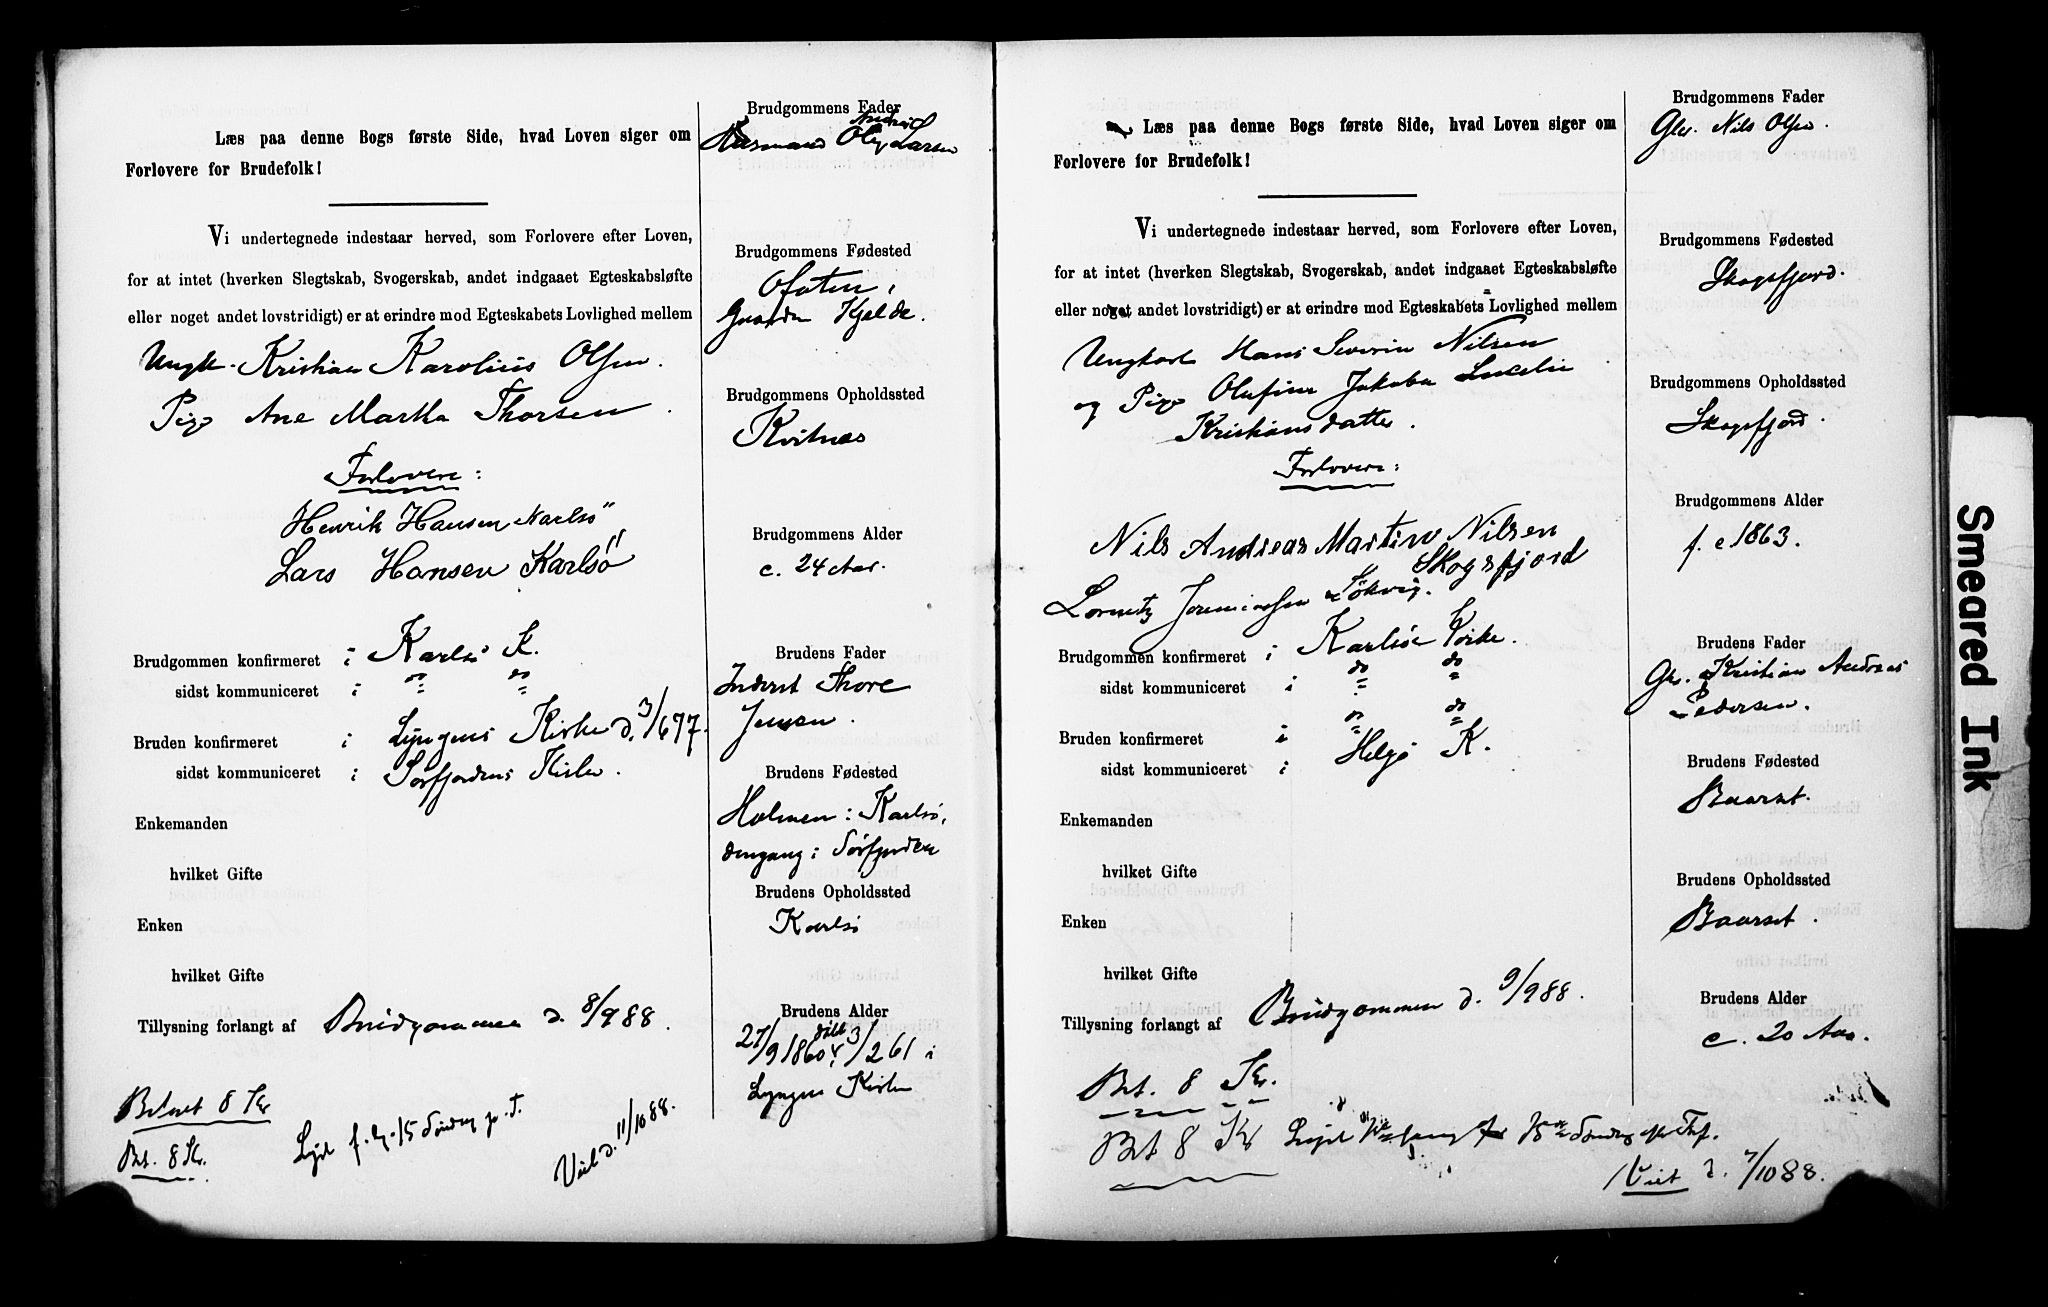 Læs paa denne Bogs første Side, hvad Loven siger om
Forlovere for Brudefolk!
Vi undertegnede indestaar herved, som Forlovere efter Loven,
for at intet (hverken Slegtskab, Svogerskab, andet indgaaet Egteskabsløfte
eller noget andet lovstridigt) er at erindre mod Egteskabets Lovlighed mellem
Ungk. Kristian Karolius Olsen.
Pige Ane Martha Thorsen.
Forlovere:
Henrik Hansen Karlsö
Lars Hansen Karlsö
Brudgommen konfirmeret i Karlsö K.
sidst kommuniceret i do do
Bruden konfirmeret i Lyngens Kirke d. 3/6 77.
sidst kommuniceret i Sørfjordens Kirke.
Enkemanden
hvilket Gifte
Enken
hvilket Gifte
Tillysning forlangt af Brudgommen d. 8/9 88.
Betalt 8 Kr
Bet. 8 Kr.
Lyst f. G. 15 Søndag p. T.
Viet d. 11/10 88.
Brudgommens Fader
Rasmus Larsen
Brudgommens Fødested
Ofoten,
Gaarden Kjelde.
Brudgommens Opholdssted
Kvitnæs
Brudgommens Alder
c. 24 Aar.
Brudens Fader
Inderst Thore
Jensen.
Brudens Fødested
Holmen i Karlsö,
dengang i Sørfjorden
Brudens Opholdssted
Karlsö
Brudens Alder
27/9 1860 døbt 3/2 61 i
Lyngens Kirke
Læs paa denne Bogs første Side, hvad Loven siger om
Forlovere for Brudefolk!
Vi undertegnede indestaar herved, som Forlovere efter Loven,
for at intet (hverken Slegtskab, Svogerskab, andet indgaaet Egteskabsløfte
eller noget andet lovstridigt) er at erindre mod Egteskabets Lovlighed mellem
Ungkarl Hans Severin Nilsen
og Pige Olufine Jakoba
Kristiansdatter.
Forlovere:
Nils Andreas Martin Nilsen
Skogsfjord
Lorentz Jeremiassen Løkvig.
Brudgommen konfirmeret i Karlsöe Kirke.
sidst kommuniceret i do do
Bruden konfirmeret i do do
sidst kommuniceret i Helgö K.
Enkemanden
hvilket Gifte
Enken
hvilket Gifte
Tillysning forlangt af Brudgommen d. 9/9 88.
Bet. 8 Kr.
Bet 8 Kr Lyst gang 15de Søndag efter Tref.
Viet d. 7/10 88.
Brudgommens Fader
Gbr. Nils Olsen.
Brudgommens Fødested
Skogsfjord.
Brudgommens Opholdssted
Skogsfjord.
Brudgommens Alder
f. c 1863.
Brudens Fader
Gbr. Kristian Andreas
Pedersen.
Brudens Fødested
Baarset.
Brudens Opholdssted
Baarset.
Brudens Alder
c. 20 Aar.
Smeared Ink